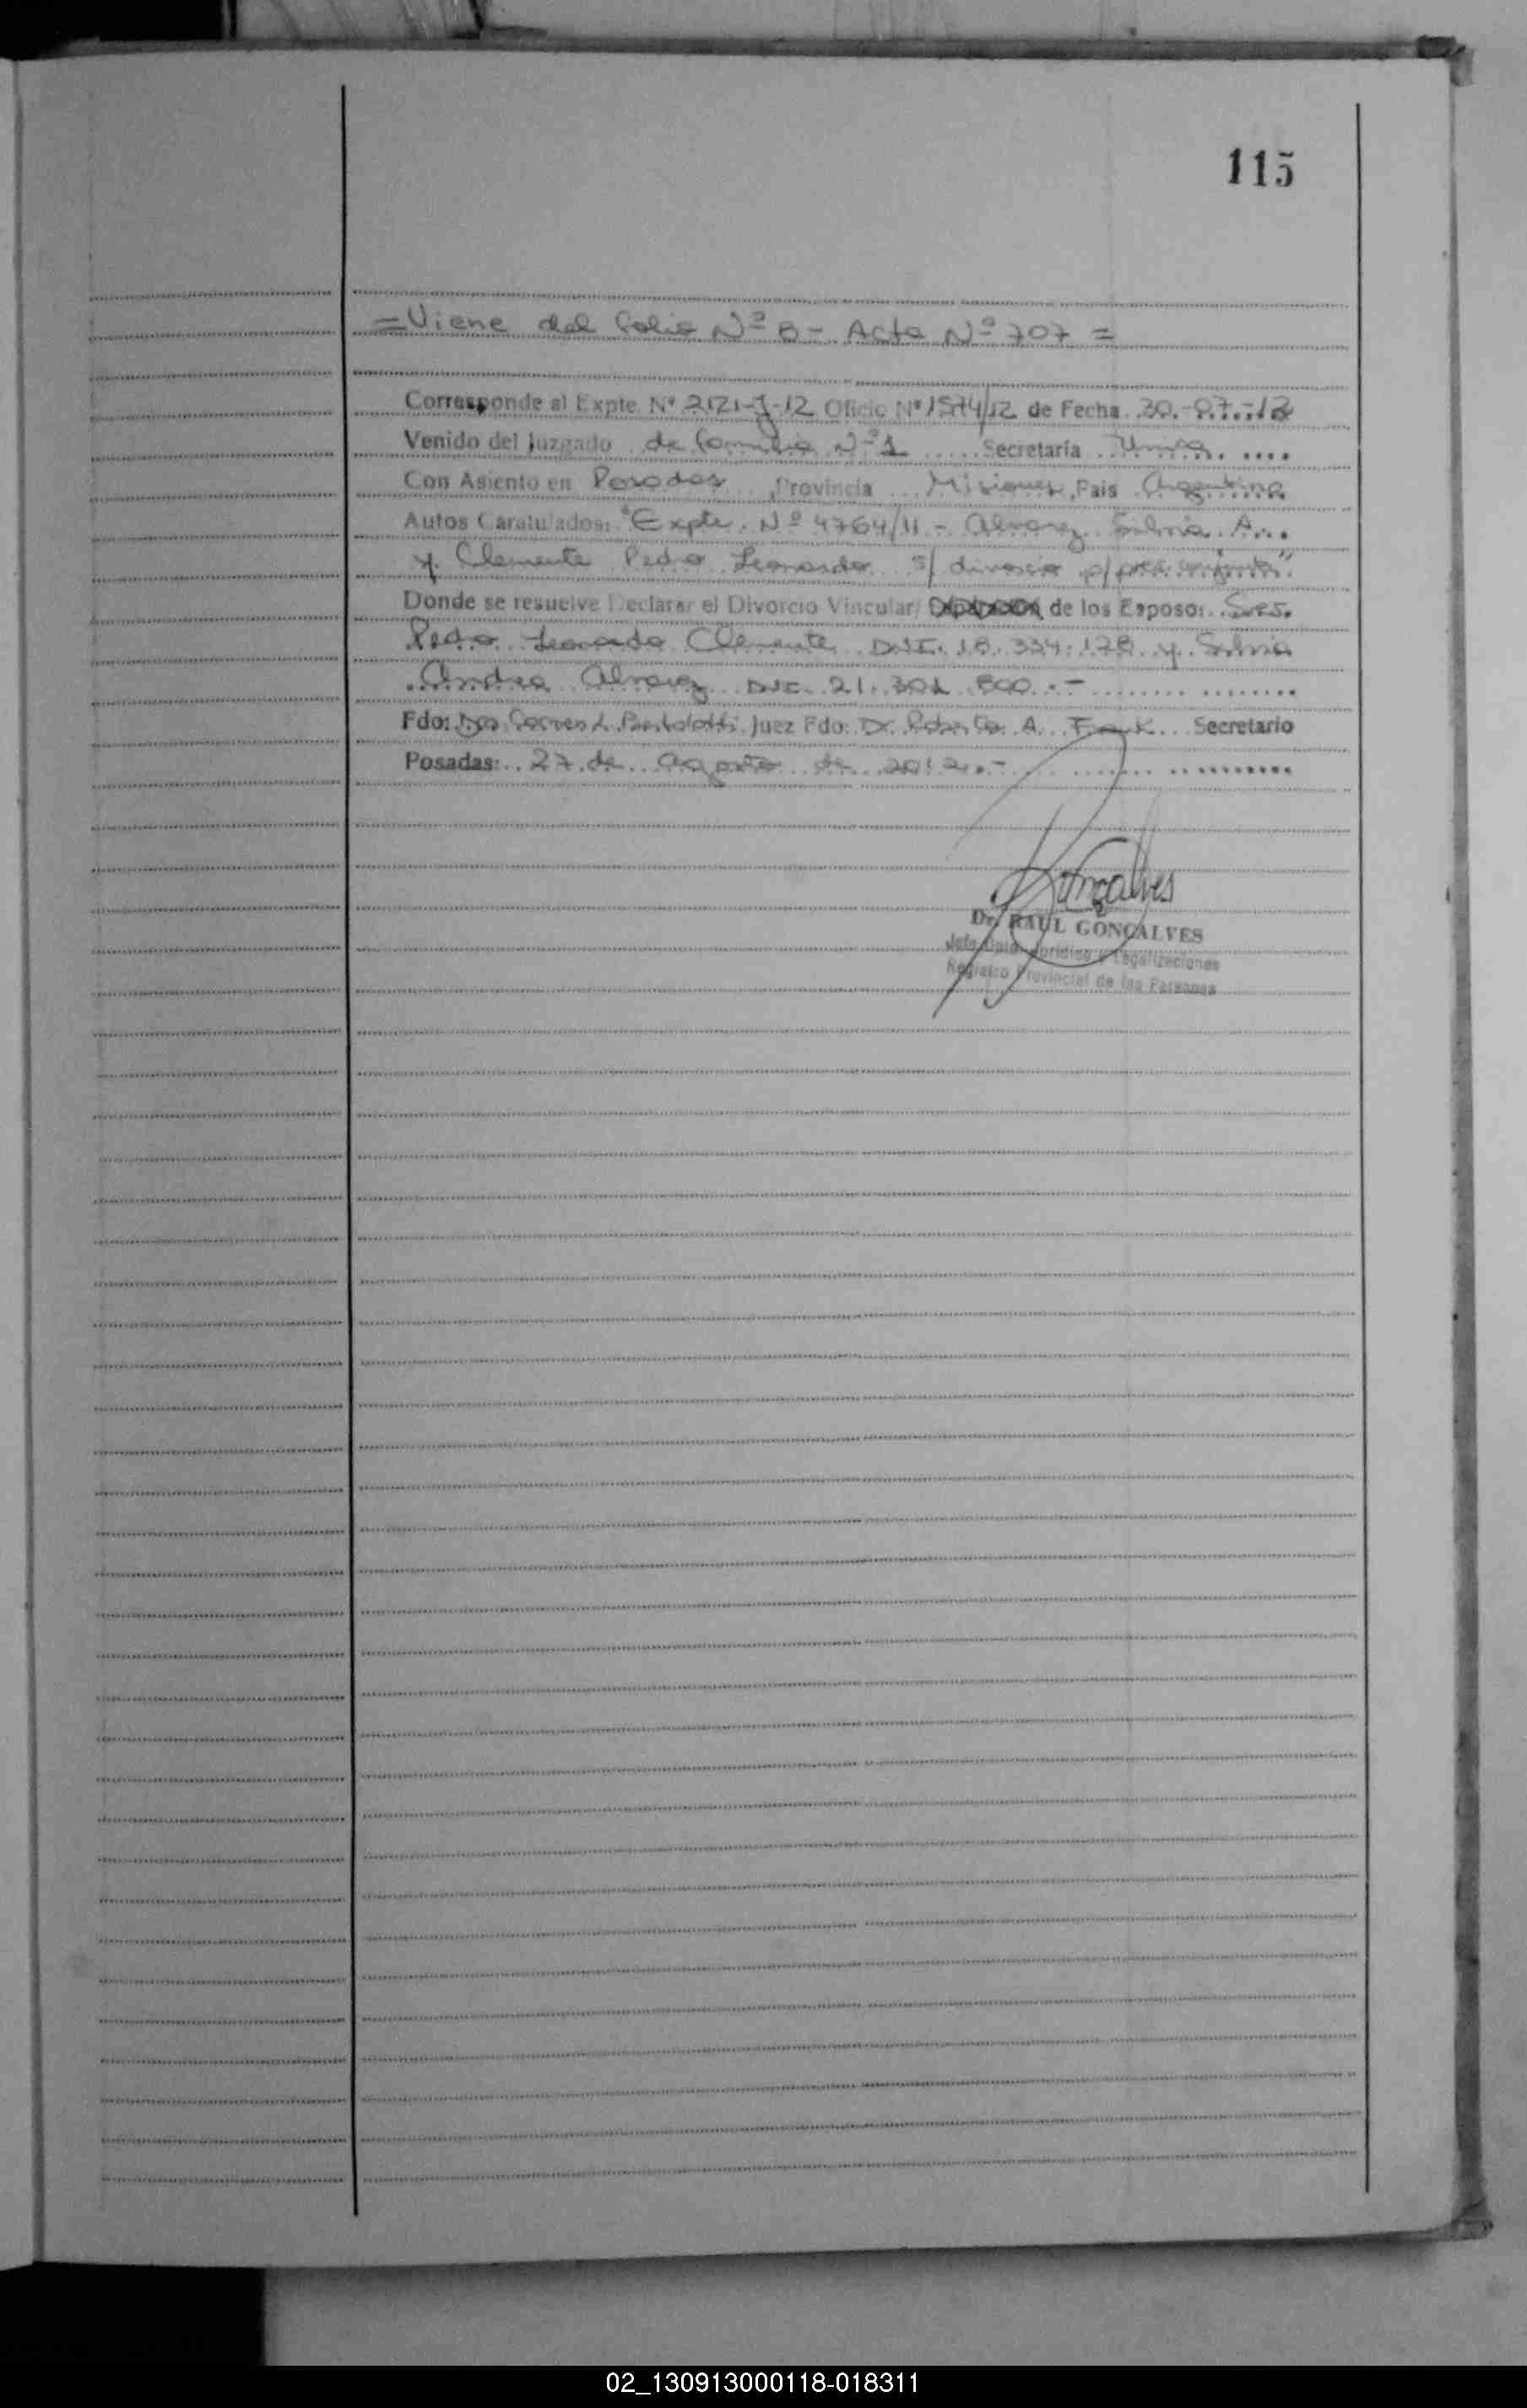 115
=Viene del folio Nº 8 - Acta Nº 707 =
Corresponde al Expte. Nº 2121-J-12 Oficio Nº 1574/12 de Fecha 30.-07.-12
Venido del Juzgado de familia Nº 1 Secretaría Unica
Con Asiento en Posadas, Provincia Misiones, Pais Argentina
Autos Caratulados: "Expte. Nº 4764/11 - Alvarez Silvia A.
y Clemente Pedro Leonardo s/ divorcio p/ pres. conjunta"
Donde se resuelve Declarar el Divorcio Vincular/ de los Esposo: Sres.
Pedro Leonardo Clemente D.N.I. 18.334.178 y Silvia
Andrea Alvarez DNI. 21.301.800.-
Fdo: Dra. Carmen L. Bertolotti Juez Fdo: Dr. Roberto A. Frank Secretario
Posadas: 27 de agosto de 2012.-
Gonçalves
Dr. RAUL GONÇALVES
Jefe Dpto. Jurídico y Legalizaciones
Registro Provincial de las Personas
02_130913000118-018311